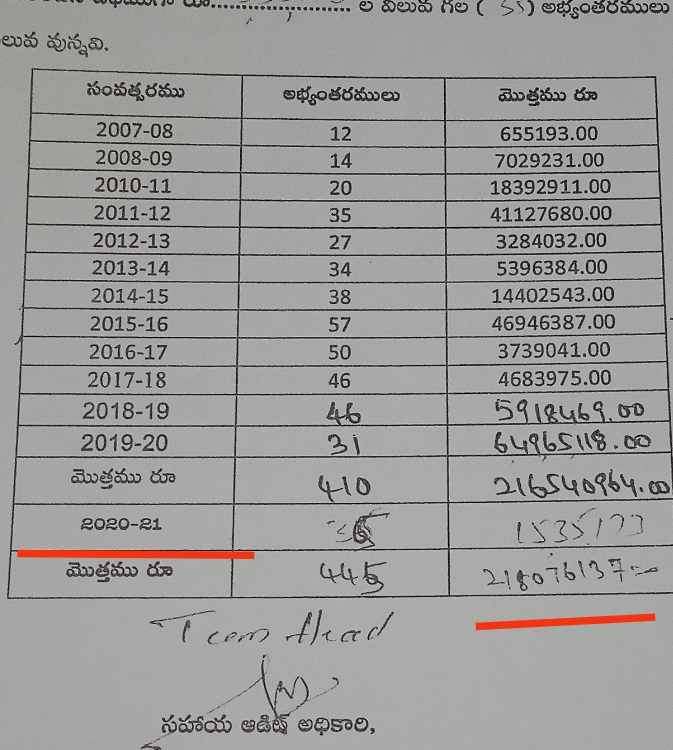 రూ.............................. ల విలువ గల ( 35) అభ్యంతరములు
లువ వున్నవి.
సంవత్సరము అభ్యంతరములు మొత్తము రూ
2007-08 12 655193.00
2008-09 14 7029231.00
2010-11 20 18392911.00
2011-12 35 41127680.00
2012-13 27 3284032.00
2013-14 34 5396384.00
2014-15 38 14402543.00
2015-16 57 46946387.00
2016-17 50 3739041.00
2017-18 46 4683975.00
2018-19 46 5918469.00
2019-20 31 64965118.00
మొత్తము రూ 410 216540964.00
2020-21 1535173
మొత్తము రూ 445 218076137=00
Team Head
సహాయ ఆడిట్ అధికారి,